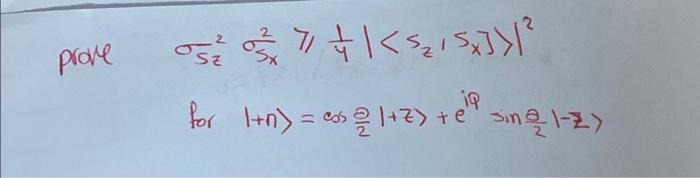 prove σ_{Sz}² σ_{Sx}² ⩾ 1/4 |<S_z, S_x]>|²
for |+n> = cos θ/2 |+z> + e^{iφ} sin θ/2 |-z>